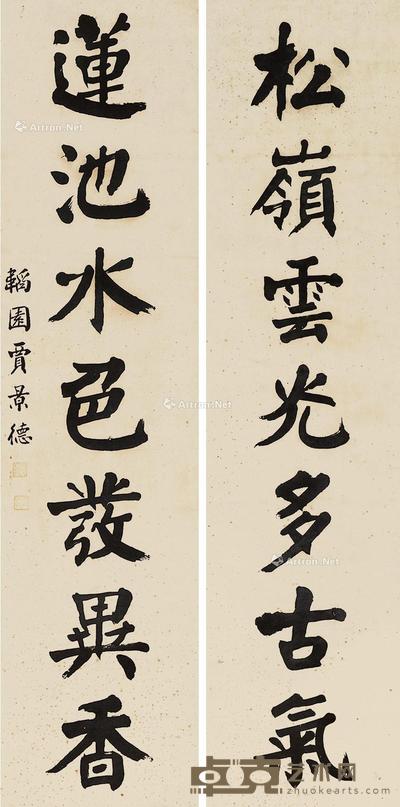 松嶺雲光多古氣
蓮池水色發異香
韜園賈景德
Artron.Net
Artron.Net
Artron.Net
Artron.Net
卓克艺术网
zhuokearts.com